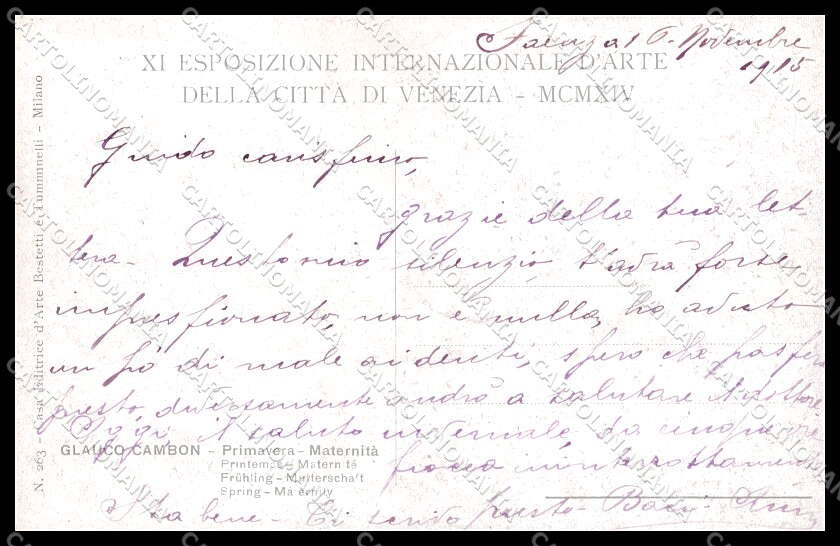 Faenza 16-Novembre
1915
XI ESPOSIZIONE INTERNAZIONALE D'ARTE
DELLA CITTÀ DI VENEZIA - MCMXIV
Guido carissimo,
grazie della tua let-
tera - Questo mio silenzio, t'avrà forse
impressionato, non è nulla, ho avuto
un pò di male ai denti, spero che passerà
presto, diversamente andrò a salutare il dottore
Oggi il saluto invernale, da cinque ore
fiocca ininterrottamente
Sta bene - Ti scrivo presto - Baci -
GLAUCO CAMBON - Primavera - Maternità
Printemps - Maternité
Frühling - Mutterschaft
Spring - Maternity
N. 263 - Casa Editrice d'Arte Bestetti e Tumminelli - Milano
CARTOLINOMANIA